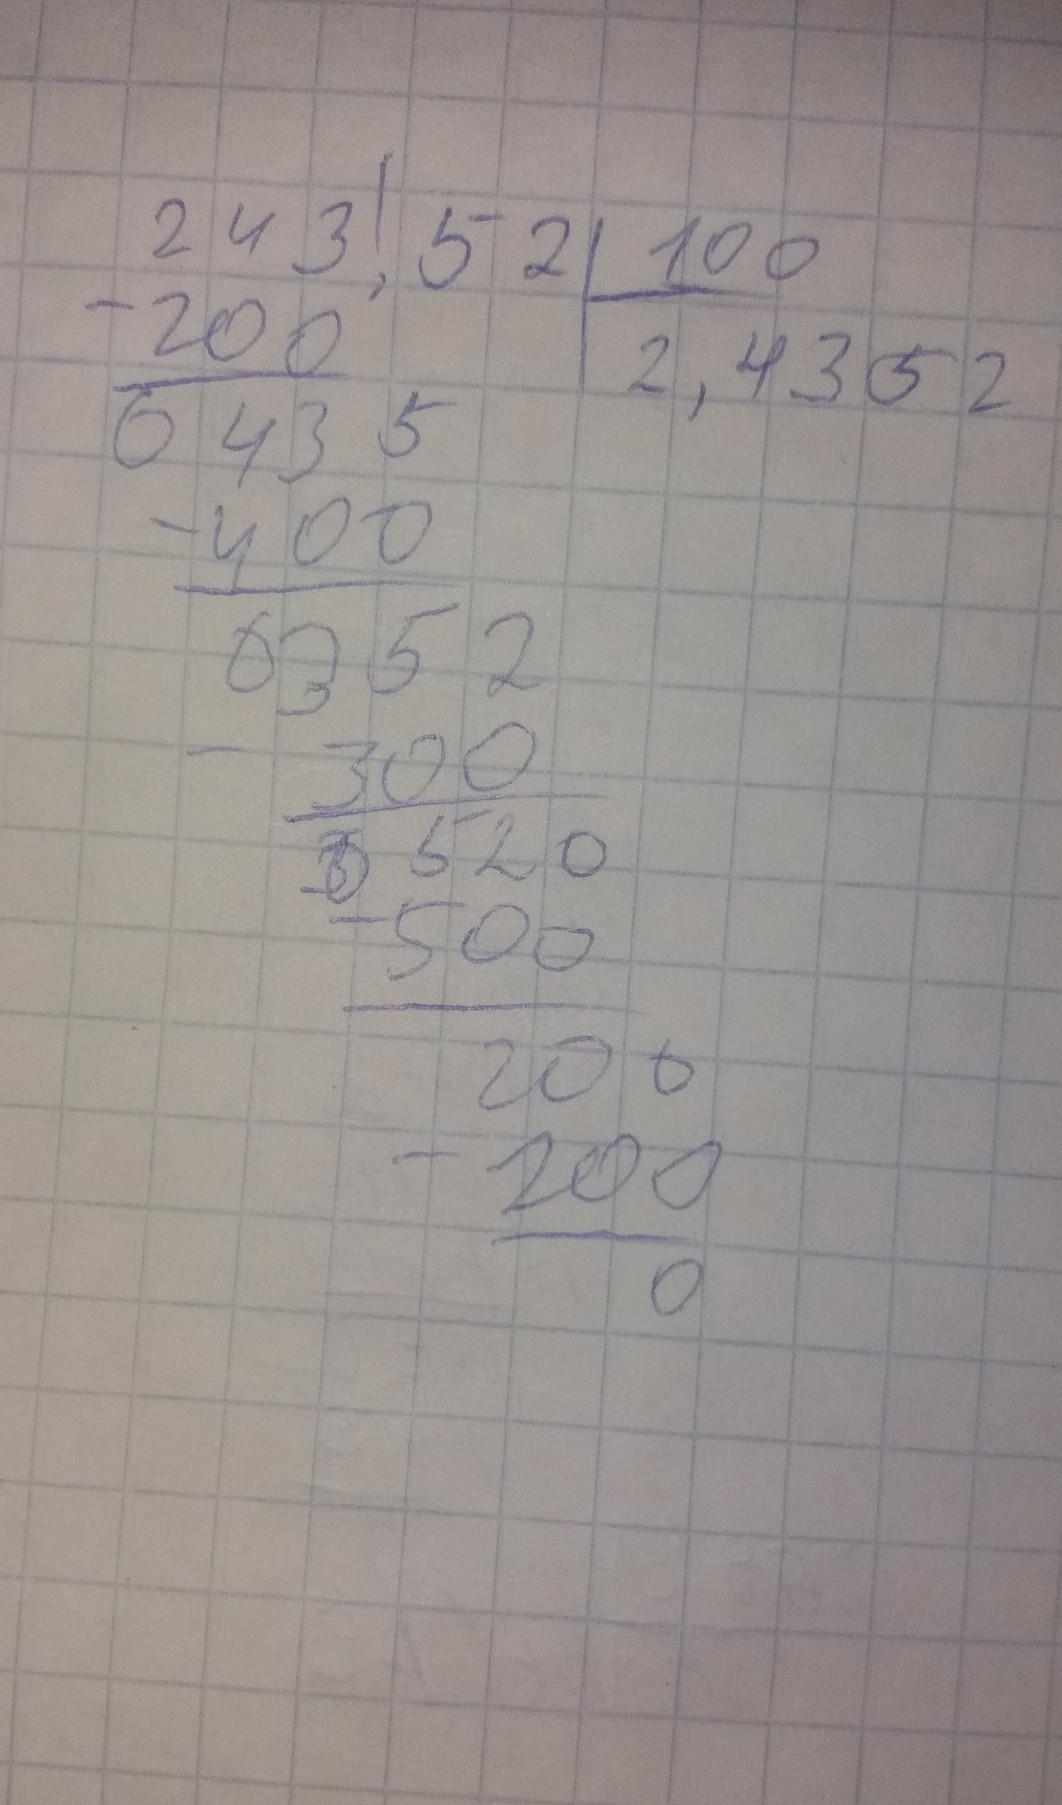 243,52 | 100
-200 2,4352
0435
-400
0352
- 300
0520
-500
200
- 200
0